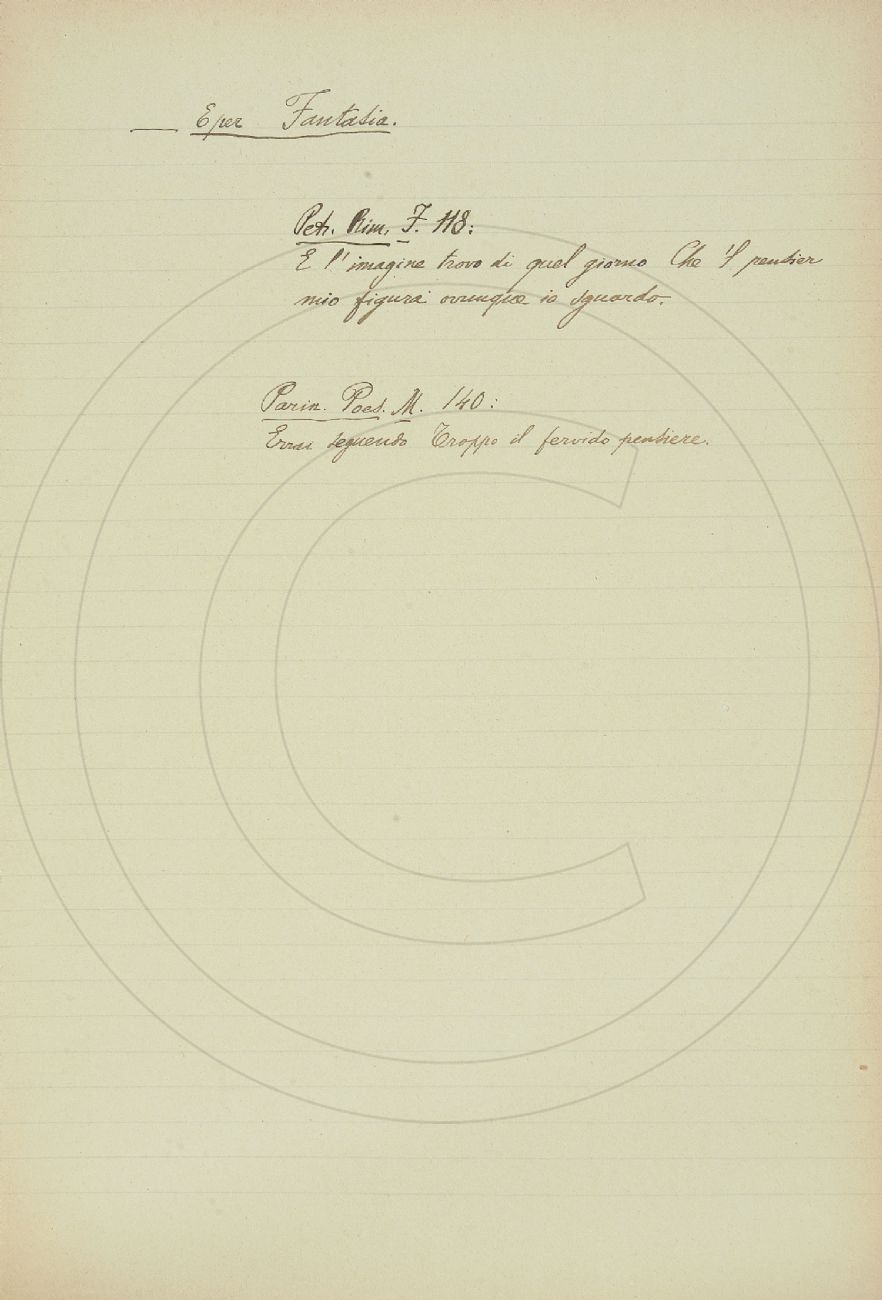 — E per Fantasia.
Petr. Rim. F. 118:
E l'imagine trovo di quel giorno Che 'l pensier
mio figura ovunque io sguardo.
Parin. Poes. M. 140:
Errai seguendo Troppo il fervido pensiere.